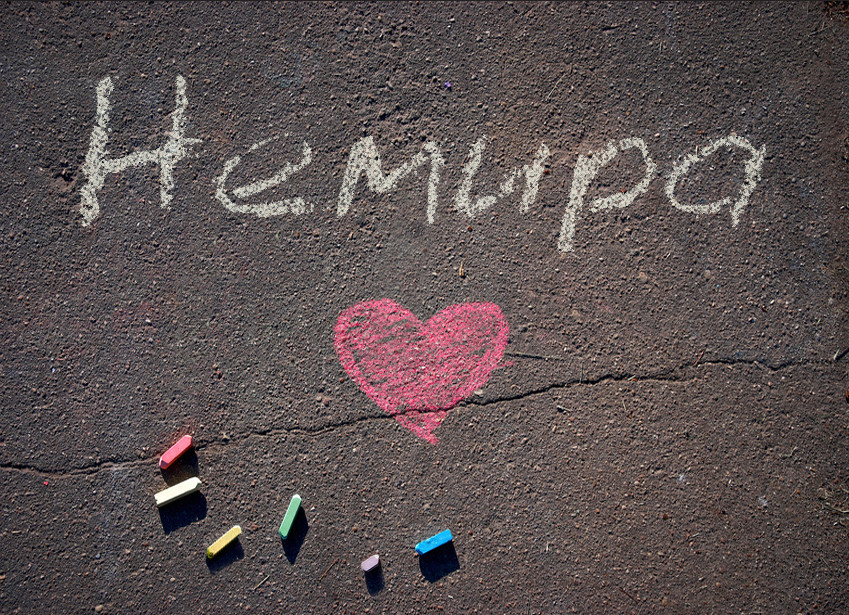 Немира